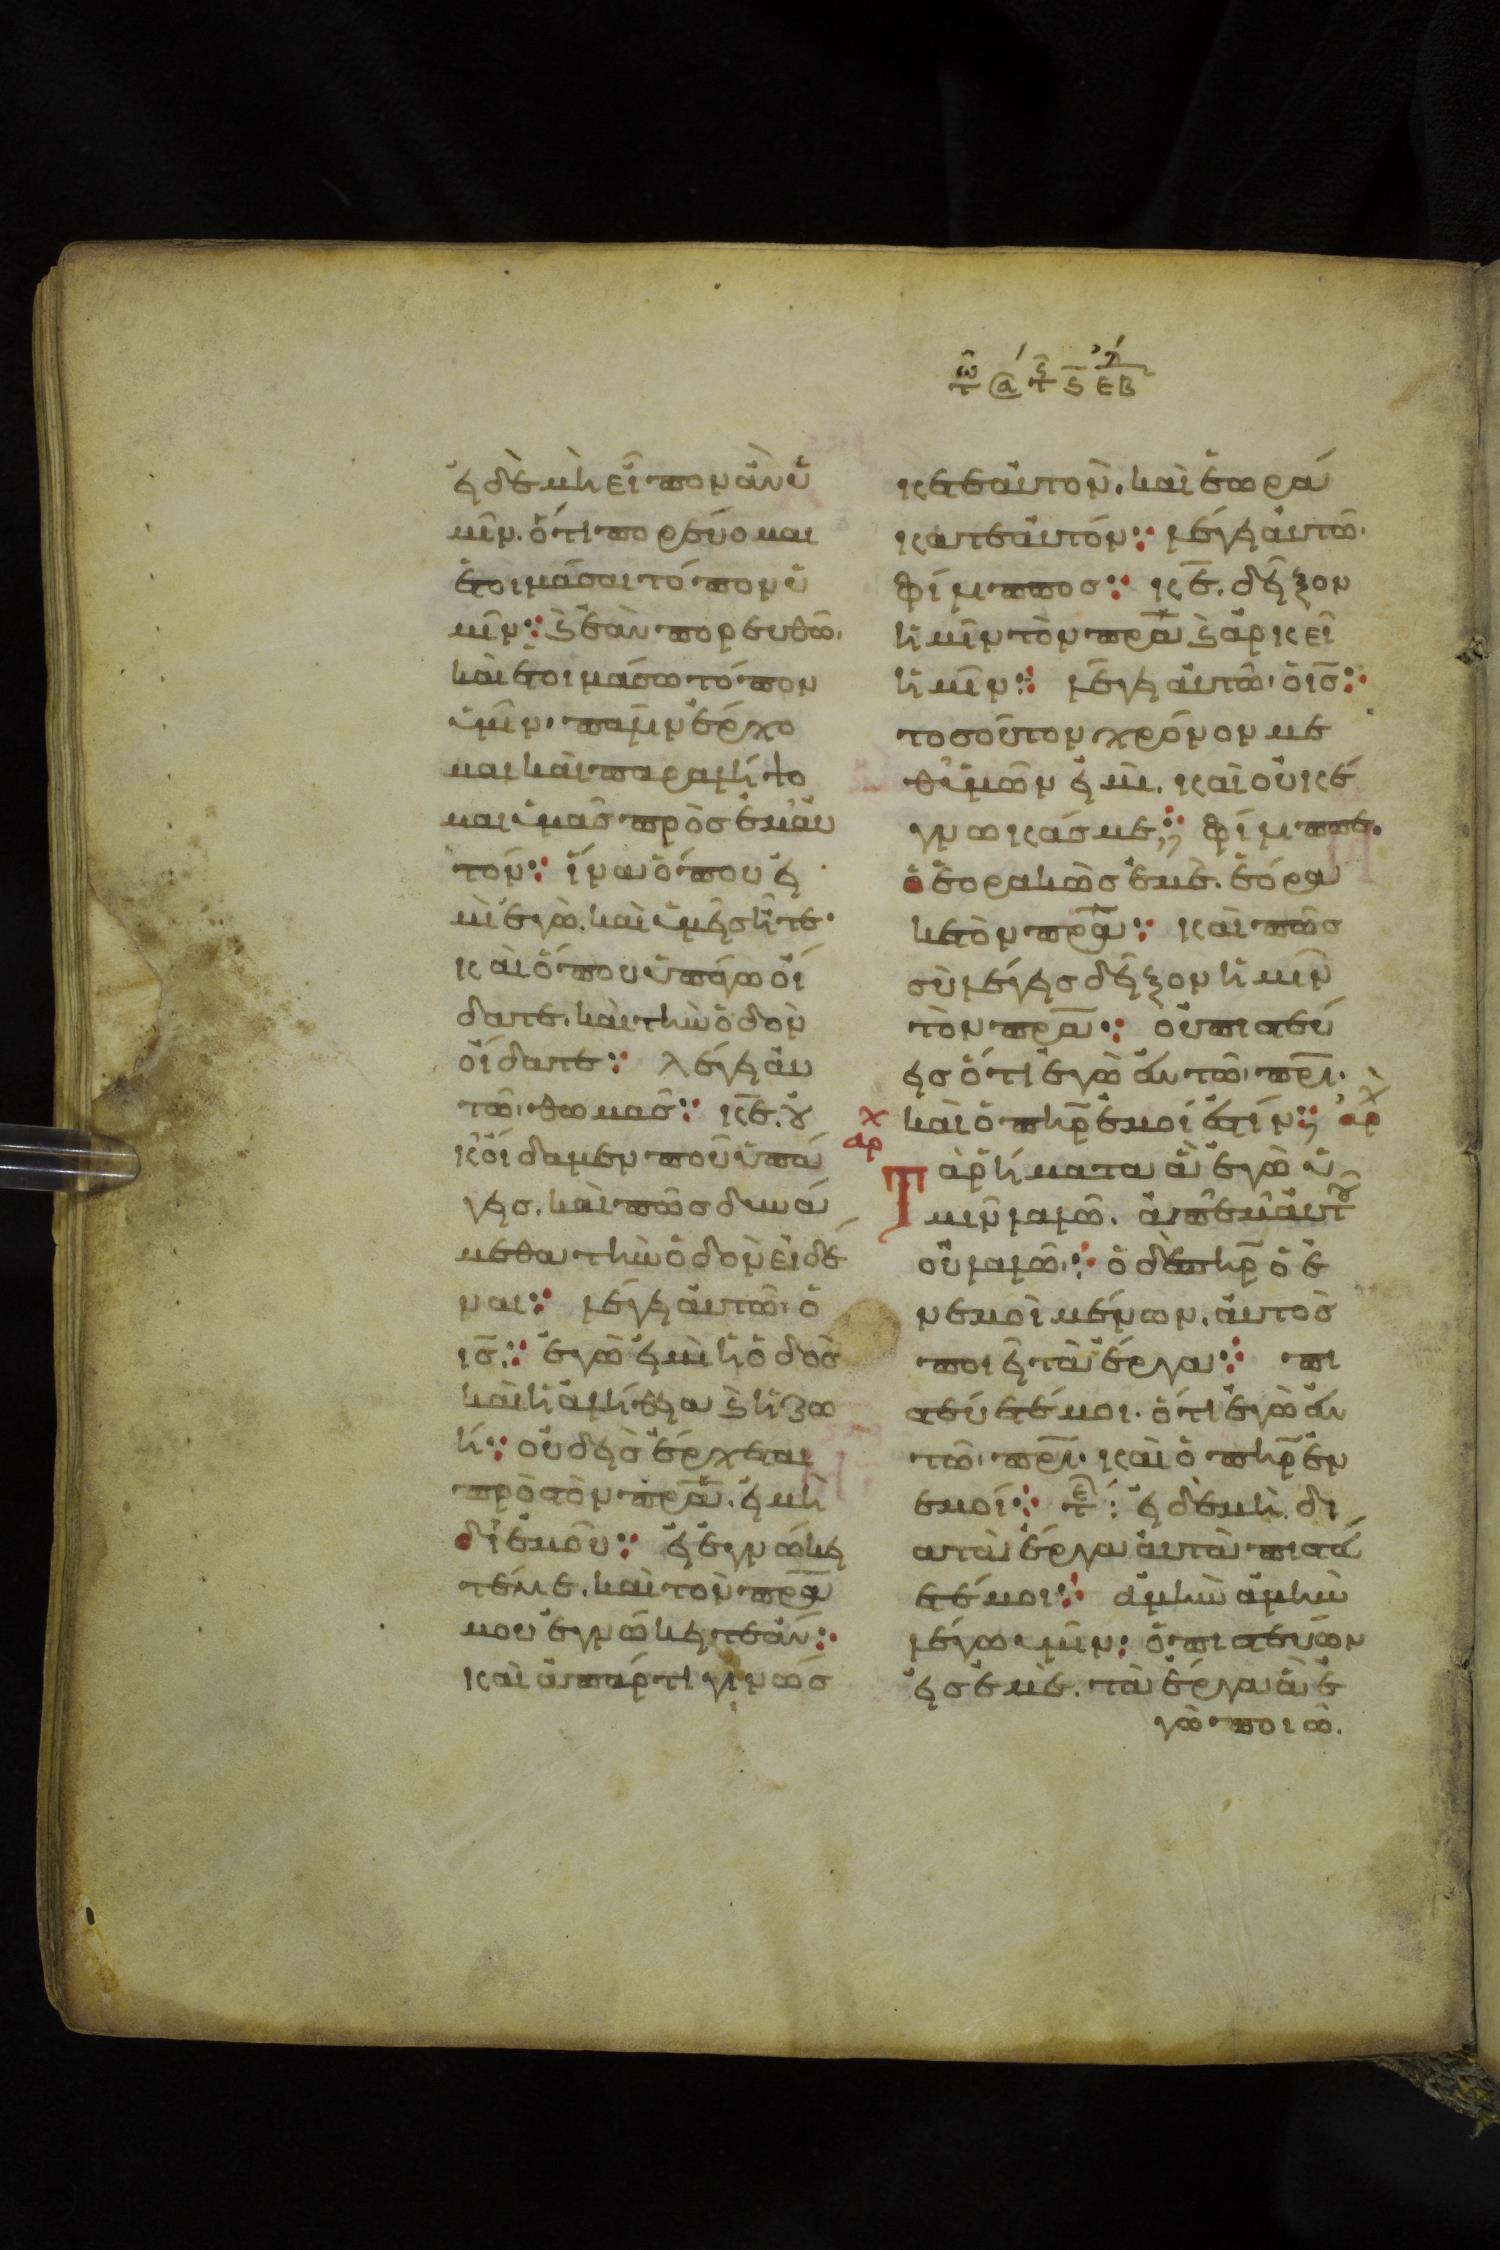 τῶ σα τ ϛ ΕΒ
εἰ δὲ μὴ εἶπον ἂν ὑ
μῖν. ὅτι πορεύομαι
ἑτοιμάσαι τόπον ὑ
μῖν: ϗ ἐὰν πορευθῶ.
καὶ ἑτοιμάσω τόπον
ὑμῖν. πάλιν ἔρχο
μαι καὶ παραλήψο
μαι ὑμᾶς πρὸς ἐμαυ
τόν: ἵνα ὅπου εἰ
μὶ ἐγὼ. καὶ ὑμεῖς ἦτε.
καὶ ὅπου ὑπάγω οἴ
δατε. καὶ τὴν ὁδὸν
οἴδατε: λέγει αὐ
τῶ. θωμᾶς: κ̅ε̅. οὐ
κ οἴδαμεν ποῦ ὑπά
γεις. καὶ πῶς δυνά
μεθα τὴν ὁδὸν εἰδέ
ναι: λέγει αὐτῶ. ὁ
ι̅ς̅: ἐγώ εἰμι ἡ ὁδὸς
καὶ ἡ ἀλήθεια ϗ ἡ ζω
ή: οὐδεὶς ἔρχεται
πρὸς τὸν π̅ρ̅α̅. εἰ μὴ
δι ἐμοῦ: εἰ ἐγνώκει
τέ με. καὶ τὸν π̅ρ̅α̅
μου ἐγνώκειτε ἄν:
καὶ ἀπάρτι γινώσ
κετε αὐτὸν. καὶ ἑωρά
κατε αὐτόν: λέγει αὐτῶ.
φίλιππος: κ̅ε̅. δεῖξον
ἡμῖν τὸν π̅ρ̅α̅ ϗ ἀρκεῖ
ἡμῖν: λέγει αὐτῶ. ὁ ι̅ς̅:
τοσοῦτον χρόνον με
θ ὑμῶν εἰμὶ. καὶ οὐκ ἔ
γνωκάς με; φίλιππε.
ὁ ἑορακὼς ἐμὲ. ἑόρα
κε τὸν π̅ρ̅α̅: καὶ πῶς
σὺ λέγεις δεῖξον ἡμῖν
τὸν π̅ρ̅α̅: οὐ πιστεύ
εις ὅτι ἐγὼ ἐν τῶ π̅ρ̅ι̅.
καὶ ὁ π̅η̅ρ̅ ἐμοί ἐστίν; ἀρχ
αρχ
Τὰ ῥήματα ἃ ἐγὼ ὑ
μῖν λαλῶ. ἀπ ἐμαυτοῦ
οὐ λαλῶ: ὁ δὲ π̅η̅ρ̅ ὁ ἐ
ν ἐμοὶ μένων. αὐτὸς
ποιεῖ τὰ ἔργα: πι
στεύετέ μοι. ὅτι ἐγὼ ἐν
τῶ π̅ρ̅ι̅. καὶ ὁ π̅η̅ρ̅ ἐν
ἐμοί: τε: εἰ δὲ μὴ. δι
α τὰ ἔργα αὐτὰ πιστεύ
ετέ μοι: ἀμὴν ἀμὴν
λέγω ὑμῖν: ὁ πιστεύων
εἰς ἐμὲ. τὰ ἔργα ἃ ἐ
γὼ ποιῶ.